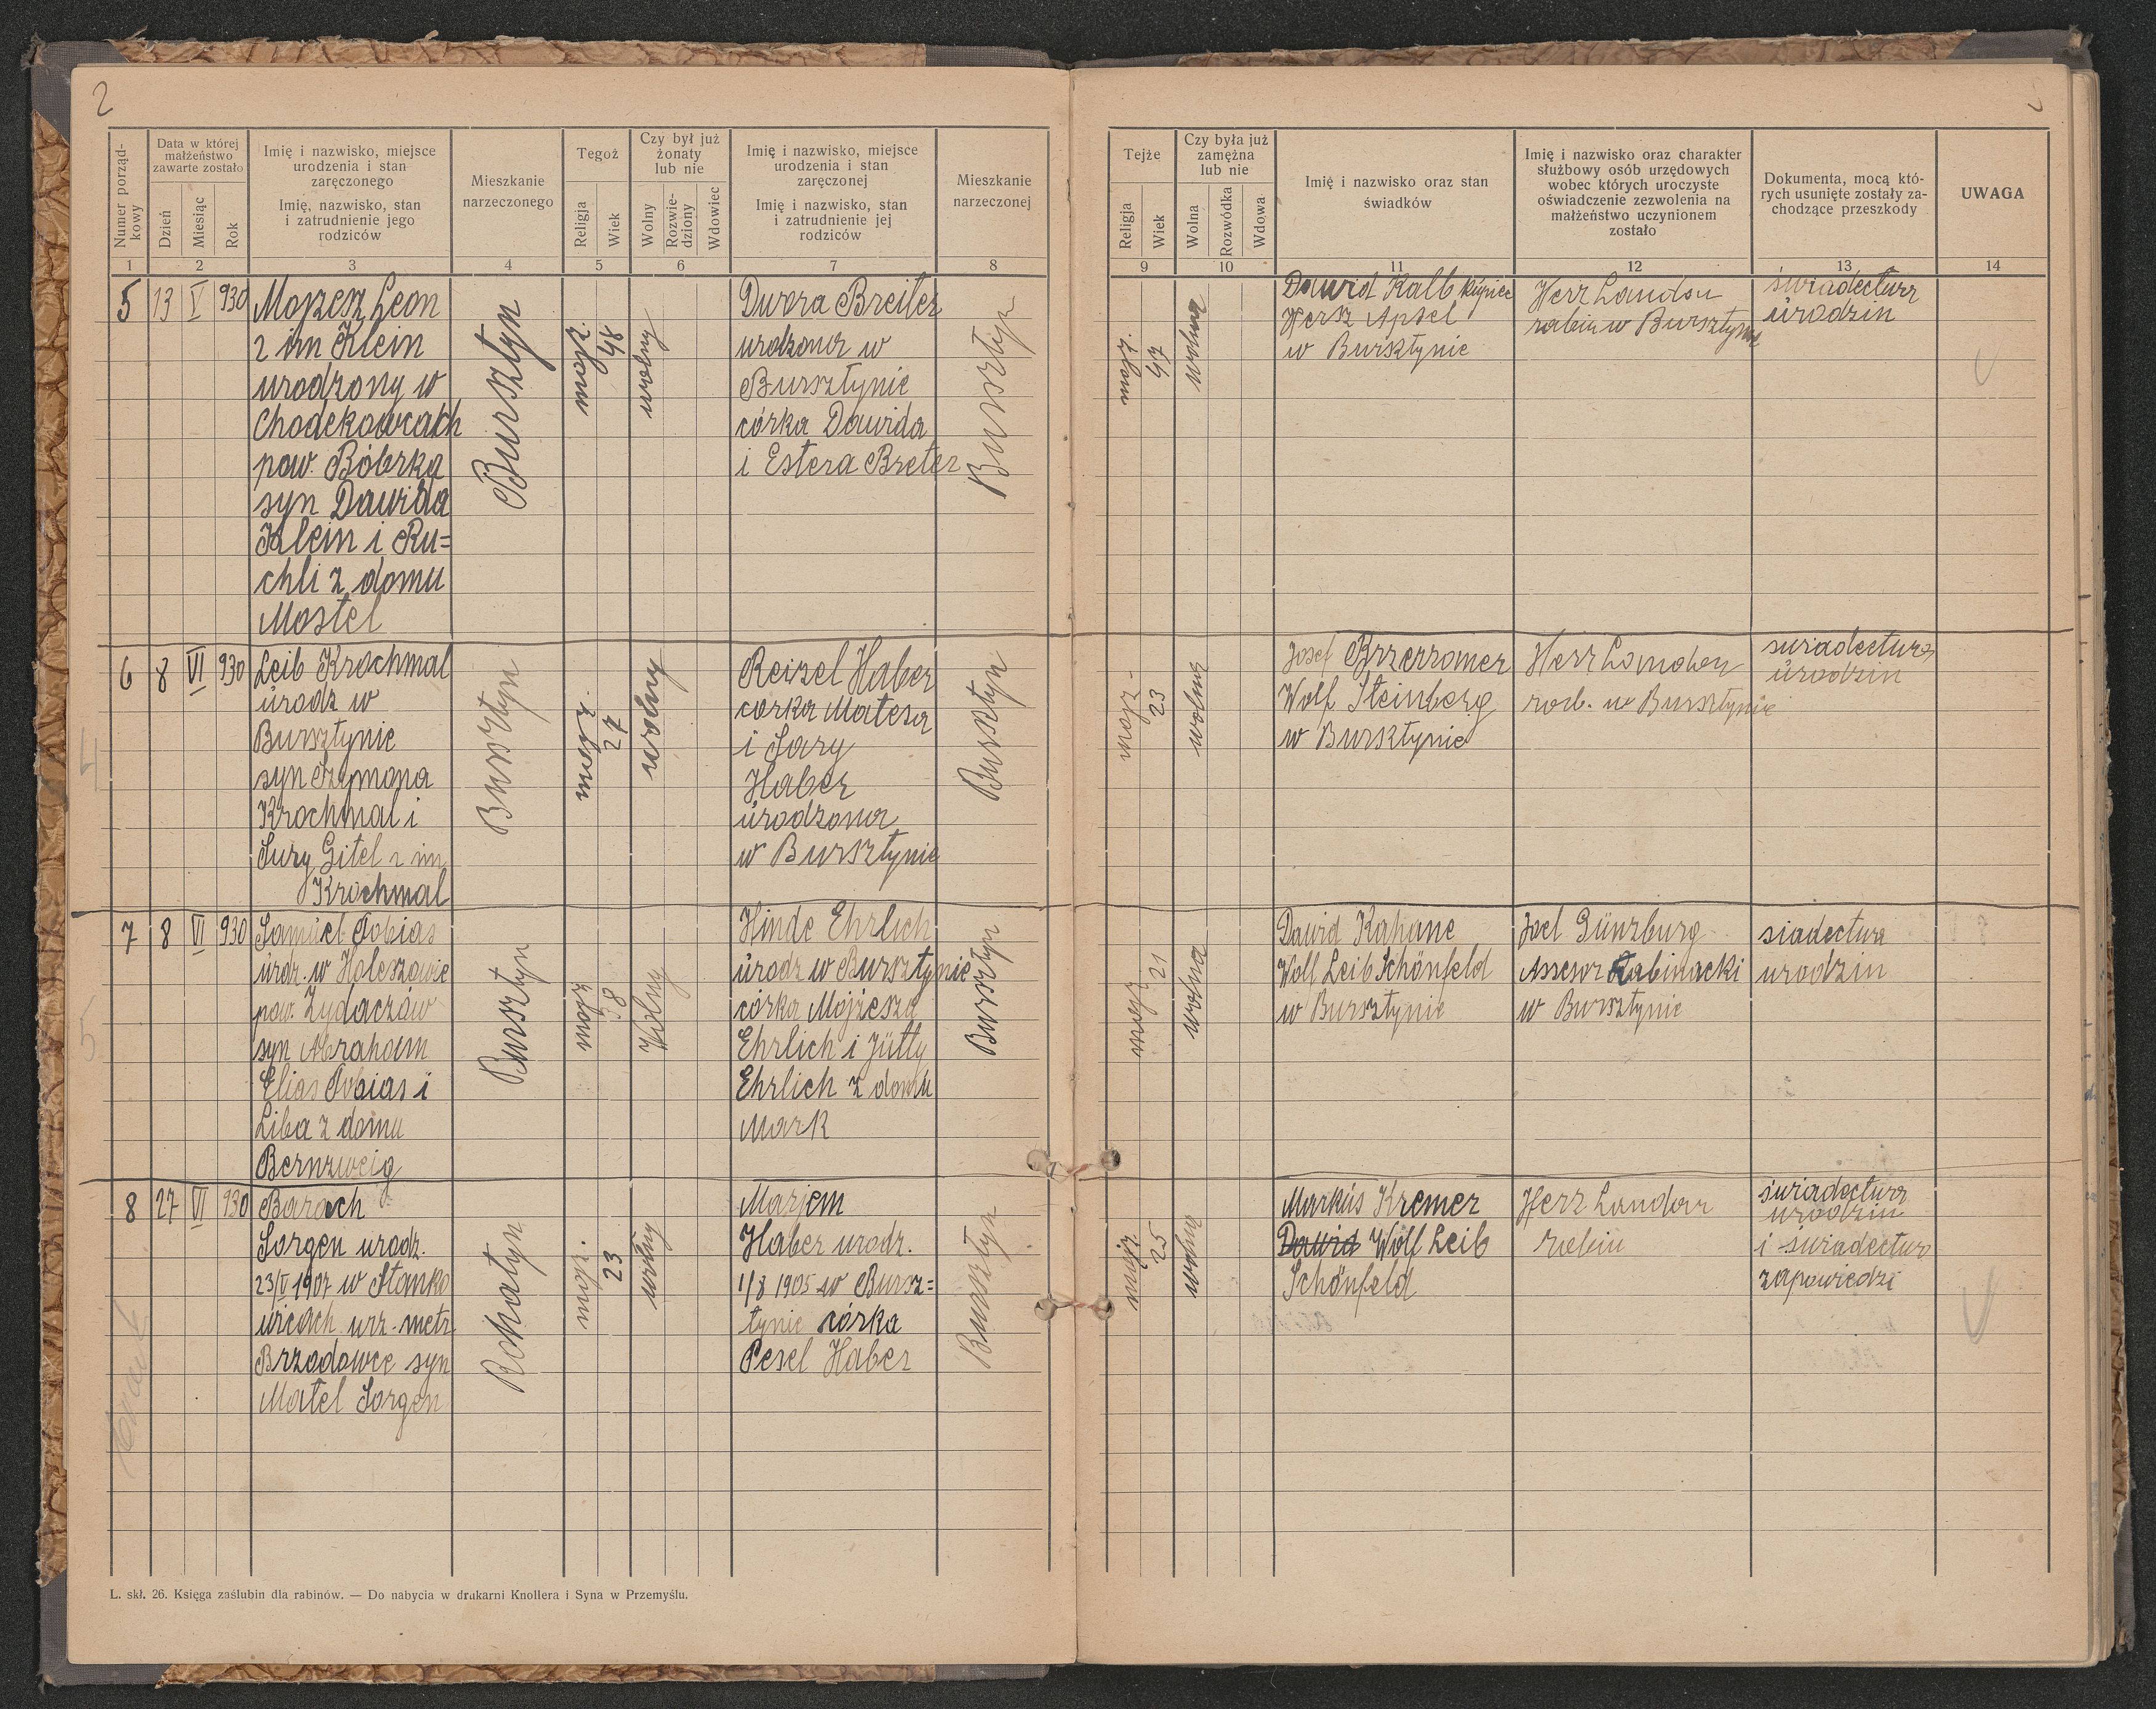 2
Numer porządkowy
Data w której małżeństwo zawarte zostało
Dzień
Miesiąc
Rok
Imię i nazwisko, miejsce urodzenia i stan zaręczonego
Imię, nazwisko, stan i zatrudnienie jego rodziców
Mieszkanie narzeczonego
Tegoż
Religja
Wiek
Czy był już żonaty lub nie
Wolny
Rozwiedziony
Wdowiec
Imię i nazwisko, miejsce urodzenia i stan zaręczonej
Imię i nazwisko, stan i zatrudnienie jej rodziców
Mieszkanie narzeczonej
Tejże
Religja
Wiek
Czy była już zamężna lub nie
Wolna
Rozwódka
Wdowa
Imię i nazwisko oraz stan świadków
Imię i nazwisko oraz charakter służbowy osób urzędowych wobec których uroczyste oświadczenie zezwolenia na małżeństwo uczynionem zostało
Dokumenta, mocą których usunięte zostały zachodzące przeszkody
UWAGA
1 2 3 4 5 6 7 8 9 10 11 12 13 14
5 13 V 930
Mojzesz Leon
2 im Klein
urodzony w
Chodekowcach
pow. Bóbrka
syn Dawida
Klein i Ru=
chli z domu
Mostel
Bursztyn
mojż. 48
wolny
Dwora Breiter
urodzona w
Bursztynie
córka Dawida
i Estera Breter
Bursztyn
mojż. 47
wolna
Dawid Kalb kupiec
Hersz Apsel
w Bursztynie
Herz Landau
rabin w Bursztynie
świadectwa
urodzin
6 8 VI 930
Leib Krochmal
urodz w
Bursztynie
syn Szymona
Krochmal i
Sury Gitel 2 im
Krochmal
Bursztyn
mojż. 27
wolny
Reizel Haber
corka Matesa
i Sary
Haber
urodzona
w Bursztynie
Bursztyn
mojż. 23
wolna
Josef
Wolf Steinberg
w Bursztynie
Herz Landau
rab. w Bursztynie
swiadectwa
urodzin
7 8 VI 930
Samuel Tobias
urdz. w Holeszowie
pow. Zydaczów
syn Abraham
Elias Tobias i
Liba z domu
Bernzweig
Bursztyn
mojż. 38
Wolny
Hinde Ehrlich
urodz w Bursztynie
córka Mojżesza
Ehrlich i Jütty
Ehrlich z domu
Mark
Bursztyn
mojż 21
wolna
Dawid Kahane
Wolf Leib Schönfeld
w Bursztynie
Joel Günzburg
Assesor Rabinacki
w Bursztynie
siadectwa
urodzin
8 27 VI 930
Baruch
Sorgen urodz.
23/V 1907 w Stanko
wicach urz. metr
Brzodowce syn
Matel Sorgen
Rohatyn
mojż. 23
wolny
Marjem
Haber urodz.
1/8 1905 w Bursz=
tynie córka
Pesel Haber
Bursztyn
mojż 25
wolna
Markus Kremer
Dawid Wolf Leib
Schönfeld
Herz Landau
rabin
świadectwa
urodzin
i świadectwo
zapowiedzi
4
5
L. skł. 26. Księga zaślubin dla rabinów. — Do nabycia w drukarni Knollera i Syna w Przemyślu.